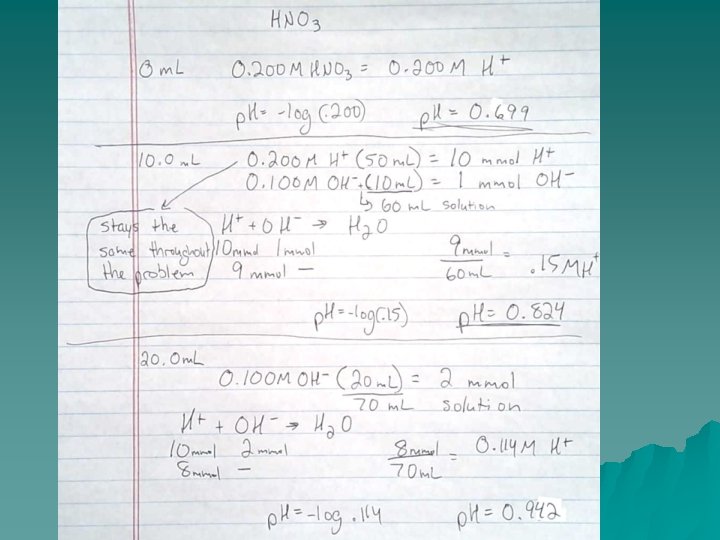 HNO3
0 mL 0.200 M HNO3 = 0.200 M H+
pH = -log (.200) pH = 0.699
10.0 mL 0.200 M H+ (50 mL) = 10 mmol H+
0.100 M OH- (10 mL) = 1 mmol OH-
↳ 60 mL solution
stays the same throughout the problem
H+ + OH- → H2O
10 mmol 1 mmol
9 mmol —
9 mmol / 60 mL = .15 M H+
pH = -log(.15) pH = 0.824
20.0 mL
0.100 M OH- (20 mL) = 2 mmol
70 mL solution
H+ + OH- → H2O
10 mmol 2 mmol
8 mmol —
8 mmol / 70 mL = 0.114 M H+
pH = -log .114 pH = 0.942